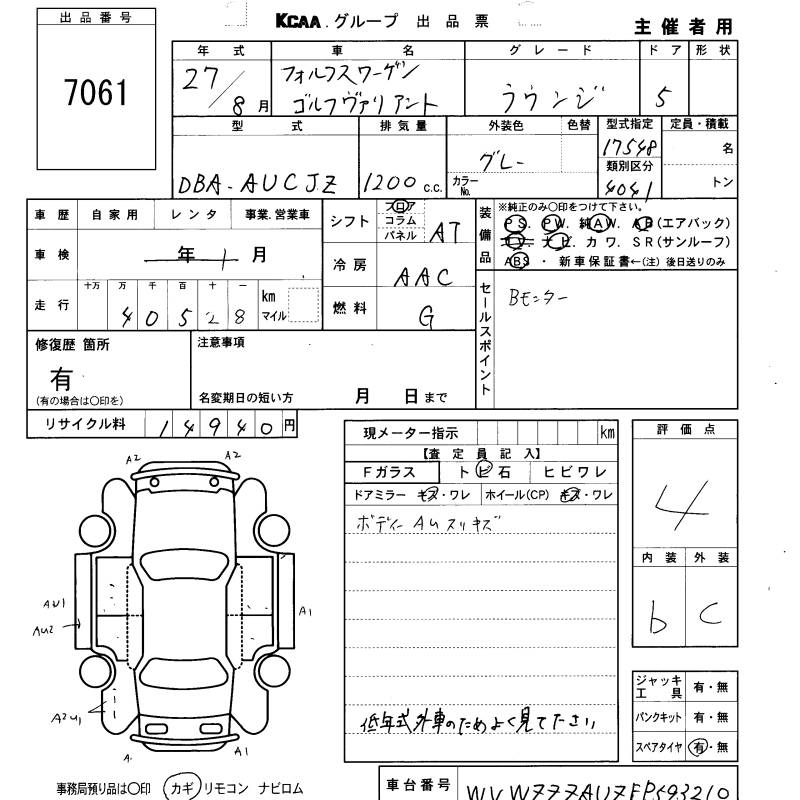 出品番号
7061
KCAA.グループ 出品票
主催者用
年式 車名 グレード ドア 形状
27/8月 フォルフスワーゲン ゴルフヴァリアント ラウンジ 5
型式 排気量 外装色 色替 型式指定 定員・積載
DBA-AUCJZ 1200 c.c. グレー カラーNo. 17548 名
類別区分
4041 トン
車歴 自家用 レンタ 事業.営業車
シフト フロア コラム パネル AT
装備品 ※純正のみ〇印をつけて下さい。
PS. PW. 純AW. AB(エアバック)
TV. ナビ. カワ. SR(サンルーフ)
ABS ・ 新車保証書←(注) 後日送りのみ
車検 年 1 月
冷房 AAC
走行 十万 万 千 百 十 一 km マイル
4 0 5 2 8
燃料 G
セールスポイント
Bモニター
修復歴 箇所
有
(有の場合は〇印を)
注意事項
名変期日の短い方 月 日まで
リサイクル料 14940円
現メーター指示 km
【査定員記入】
Fガラス トビ石 ヒビワレ
ドアミラー キズ・ワレ ホイール(CP) キズ・ワレ
ボディー AUスリキズ
低年式外車のためよく見て下さい
評価点
4
内装 外装
b C
A2 A2
AU1
AU2
A1
A2U1
A. A1
ジャッキ工具 有・無
パンクキット 有・無
スペアタイヤ 有・無
事務局預り品は〇印 カギ リモコン ナビロム
車台番号 WVWZZZAUZFP593210